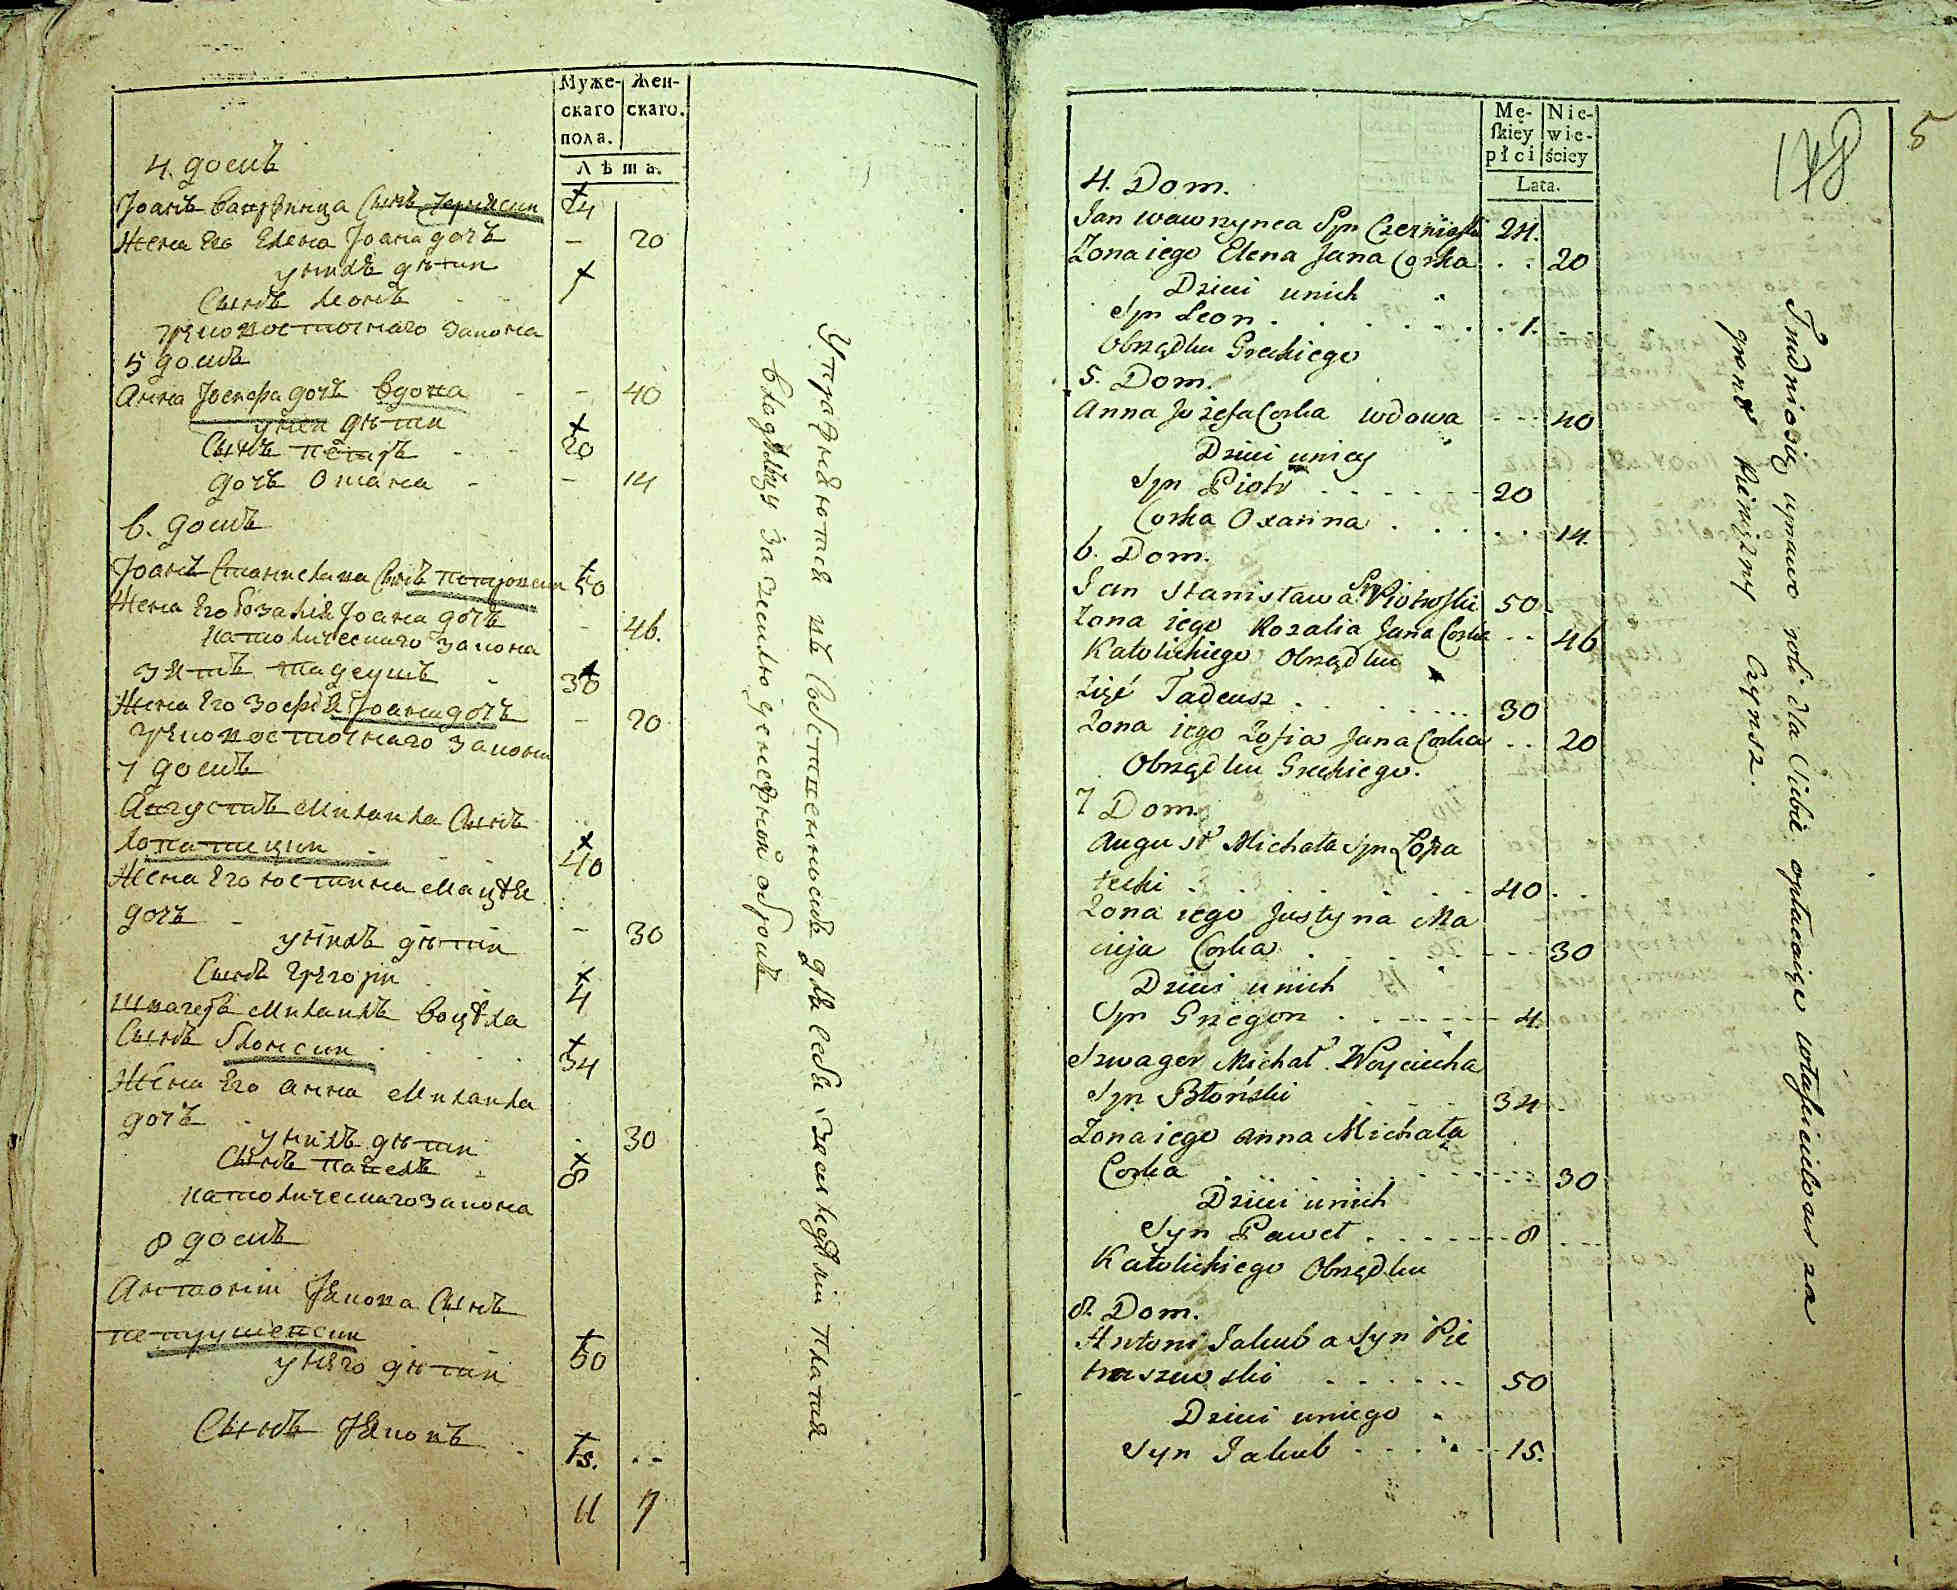 Муже-
скаго
пола.
Жен-
скаго.
Лѣта.
4. домъ
Іоанъ Вавринца Сынъ Чернясци 24
Жена Его Елена Іоана дочъ - 20
у нихъ дѣти
Сынъ Леонъ 1
грековосточнаго закона
5 домъ
Анна Іосефа дочъ вдова - 40
у неи дѣти
Сынъ Петръ 20
дочъ - 14
6. домъ
Іоанъ Станислава Сынъ Петровски 50
Жена Его Розалія Іоана дочъ - 46.
католическаго закона
Зять Тадеушъ 30
Жена Его Зофія Іоана дочъ - 20
грековосточнаго закона
7 домъ
Августъ Михаила Сынъ
Лопатецки 40
Жена Его Юстина Мацѣя
дочъ - 30
у нихъ дѣти
Сынъ Грегори 4
Швагеръ Михаилъ Войцѣха
Сынъ Блонски 34
Жена Его Анна Михаила
дочъ 30
у нихъ дѣти
Сынъ Павелъ 8
католическаго закона
8 домъ
Антоній Якова Сынъ
Петрушевски 50
у него дѣти
Сынъ Яковъ 15. . -
11 7
Упражняются въ для себя земледѣлія платя
владѣльцу за землю денежной оброкъ
5
178
Mę-
skiey
płci
Nie-
wie-
ściey
Lata.
4. Dom.
Jan Wawrzynca Syn Czerniaski 24.
Zona iego Elena Jana Corka . . 20
Dzieci u nich
Syn Leon . . . . . . . 1. . .
Obrządku Greckiego
5. Dom.
Anna Jozefa Corka wdowa - - - 40
Dzieci u niey
Syn Piotr . - - - - - 20
Corka Oxanna . . . . . . 14.
6. Dom.
Jan Stanisława Syn Piotrowski 50.
Zona iego Rozalia Jana Corka - - 46
Katolickiego Obrządku
Zięć Tadeusz . . . . . . . . 30
Zona iego Zofia Jana Corka . . 20
Obrządku Greckiego.
7 Dom.
August Michała Syn Łopa
tecki . . . . . . . . 40 . .
Zona iego Justyna Ma
cieja Corka . . . . - - - 30
Dzieci u nich
Syn Grzegorz . - - - - - - 4.
Szwager Michał Woyciecha
Syn Błoński . . . . 34 .
Zona iego Anna Michała
Corka . . . . . . . - - - - 30
Dzieci u nich
Syn Paweł . - - - - - - 8 . . .
Katolickiego Obrządku
8. Dom.
Antoni Jakuba Syn Pie
truszewski . - - - - - - 50
Dzieci u niego
Syn Jakub - - - - - - 15.
Trudnią się uprawą roli dla Siebie opłacaiąc właścicielowi za
grunt Pieniężny Czynsz.